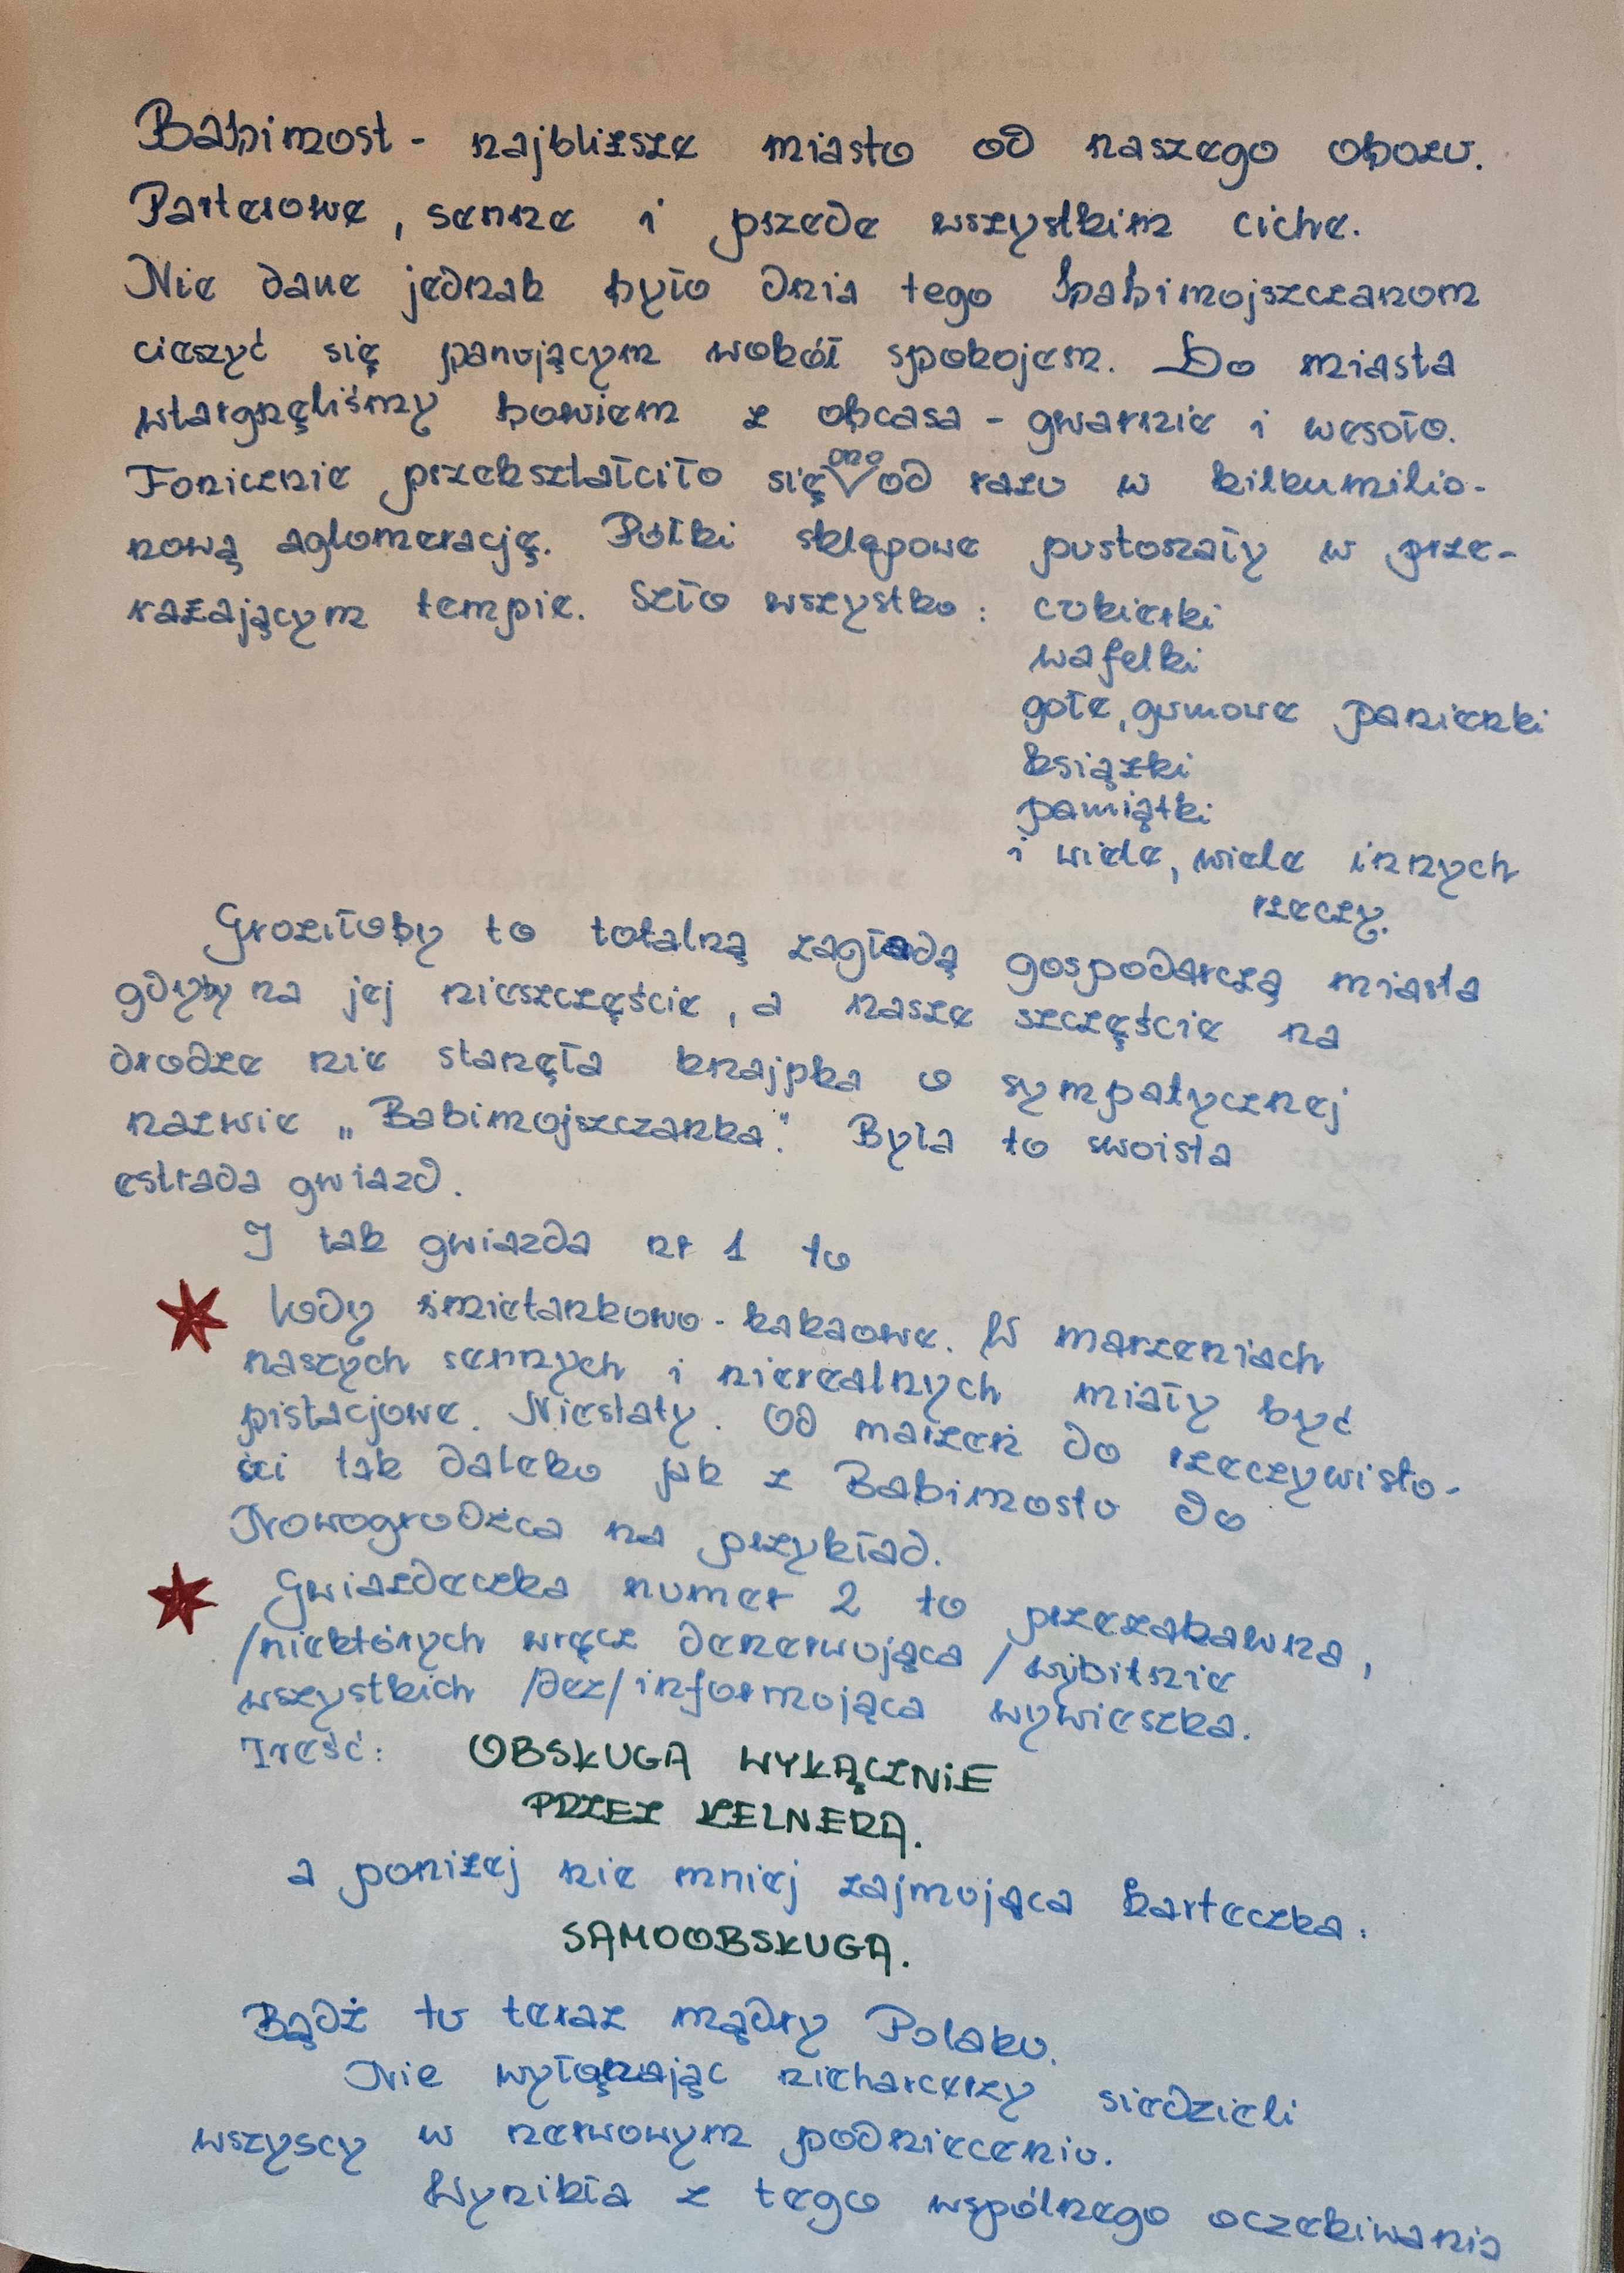 Babimost - najbliższe miasto od naszego obozu.
Parterowe, senne i przede wszystkim ciche.
Nie dane jednak było dnia tego babimojszczanom
cieszyć się panującym wokół spokojem. Do miasta
wtargnęliśmy bowiem z obcasa - gwarnie i wesoło.
Fonicznie przekształciło się ono od razu w kilkumilio-
nową aglomerację. Półki sklepowe pustoszały w prze-
rażającym tempie. Szło wszystko: cukierki
wafelki
gołe, gumowe panienki
książki
pamiątki
i wiele, wiele innych
rzeczy.
Groziłoby to totalną zagładą gospodarczą miasta
gdyby na jej nieszczęście, a nasze szczęście na
drodze nie stanęła knajpka o sympatycznej
nazwie „Babimojszczanka". Była to swoista
estrada gwiazd.
I tak gwiazda nr 1 to
lody śmietankowo-kakaowe. W marzeniach
naszych sennych i nierealnych miały być
pistacjowe. Niestaty. Od marzeń do rzeczywisto-
ści tak daleko jak z Babimostu do
Nowogrodźca na przykład.
Gwiazdeczka numer 2 to przezabawna,
/niektórych wręcz denerwująca/ wybitnie
wszystkich /dez/informująca wywieszka.
Treść: OBSŁUGA WYŁĄCZNIE
PRZEZ KELNERA.
a poniżej nie mniej zajmująca karteczka:
SAMOOBSŁUGA.
Bądź tu teraz mądry Polaku.
Nie wyłączając nieharcerzy siedzieli
wszyscy w nerwowym podnieceniu.
Wynikła z tego wspólnego oczekiwania